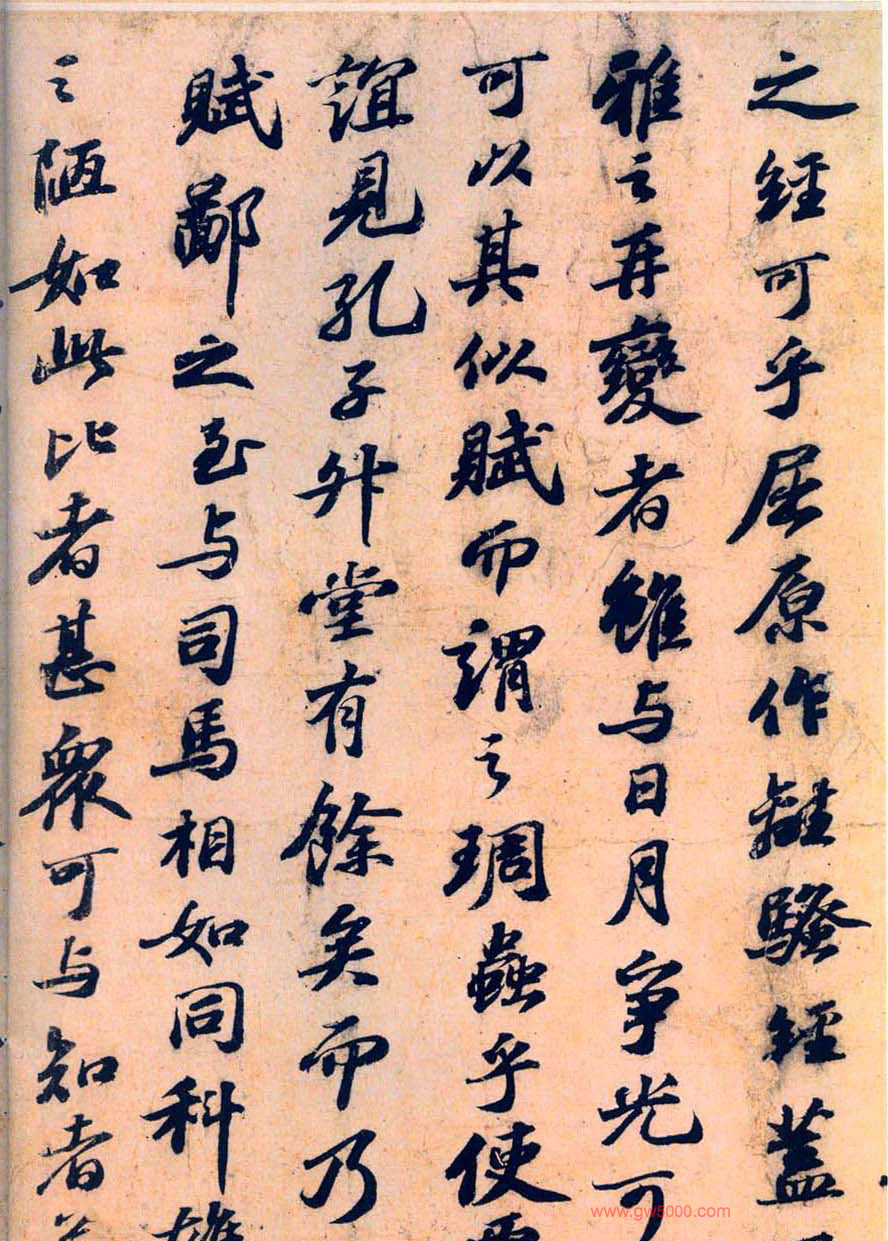 之經可乎屈原作離騷經蓋
雅之再變者雖与日月爭光可
可以其似賦而謂之琱蟲乎使
誼見孔子升堂有餘矣而乃
賦鄙之至与司馬相如同科
之陋如此比者甚衆可与知者
www.gw5000.com